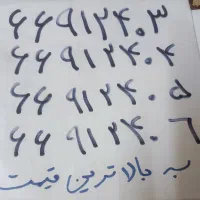 ۶۶۹۱۲۴۰۳
۶۶۹۱۲۴۰۴
۶۶۹۱۲۴۰۵
۶۶۹۱۲۴۰۶
به بالاترین قیمت